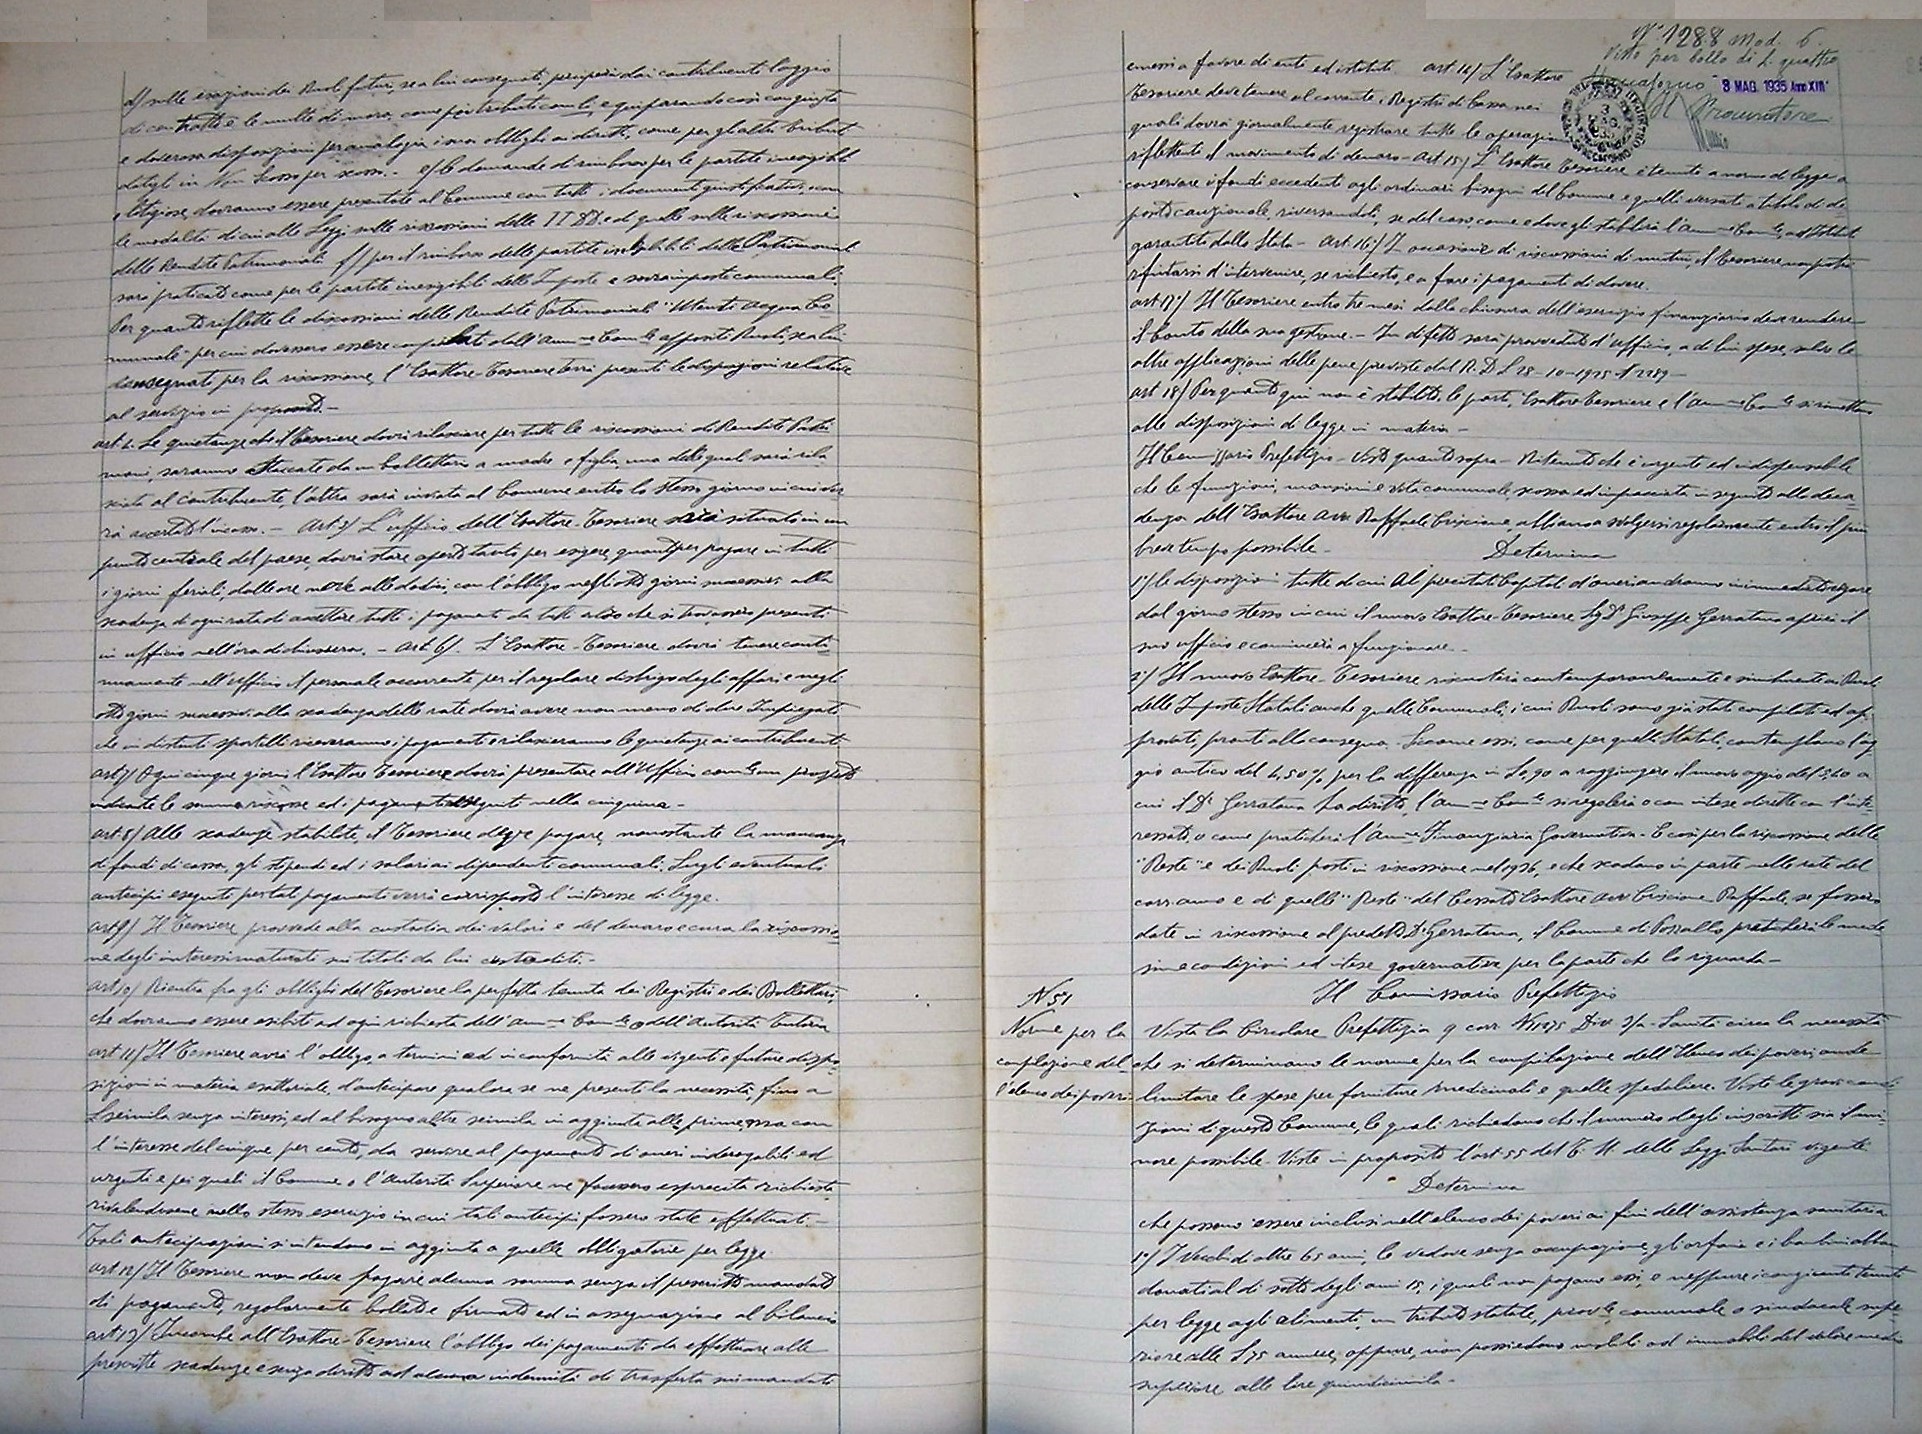 d) sulle esazioni dei Ruoli futuri, se a lui consegnati percepirà dai contribuenti l'aggio
di contratto e le multe di mora, come per tributi com.li, e equiparando così congiunta
e doverosa disposizioni per analogia i suoi obblighi ai diritti, come per gli altri tributi
datigli in Non Scosso per scosso. - e) le domande di rimborso per le partite inesigibili
litigiose, dovranno essere presentate al Comune con tutti i documenti giustificativi, con
le modalità di cui alle Leggi sulle riscossioni delle II. DD. e di quelle sulle riscossioni
delle Rendite Patrimoniali f) per il rimborso delle partite inesigibili delle Patrimoniali
sarà praticato come per le partite inesigibili delle Imposte e sovraimposte comunali.
Per quanto riflette le riscossioni delle Rendite Patrimoniali "Utenti acqua Co
munale" per cui dovessero essere compilati dall'Amm.ne Com.le appositi Ruoli, se a lui
consegnati per la riscossione, l'Esattore-Tesoriere terrà presenti le disposizioni relative
al servizio in proposito.-
Le quietanze che il Tesoriere dovrà rilasciare per tutte le riscossioni di Rendite Patri
moni, saranno staccate da un bollettario a madre e figlia, una delle quali sarà rila
sciata al contribuente, l'altra sarà inviata al Comune entro lo stesso giorno in cui
rà accertato l'incasso. - L'ufficio dell'Esattore-Tesoriere sarà situato in un
punto centrale del paese, dovrà stare aperto tanto per esigere, quanto per pagare in tutti
i giorni feriali, dalle ore nove alle dodici, con l'obbligo negli otto giorni successivi alla
scadenza di ogni rata di accettare tutti i pagamenti da tutti coloro che si trovassero presenti
in ufficio nell'ora di chiusura. - Art. 6) L'Esattore-Tesoriere dovrà tenere conti
nuamente nell'Ufficio il personale occorrente per il regolare disbrigo degli affari e negli
otto giorni successivi alla scadenza delle rate dovrà avere non meno di due Impiegati
che in distinti sportelli riceveranno i pagamenti e rilascieranno le quietanze ai contribuenti
art. 7) Ogni cinque giorni l'Esattore Tesoriere dovrà presentare all'Ufficio com.le un prospetto
indicante le somme riscosse ed i pagamenti eseguiti nella cinquina.-
art. 8) Alle scadenze stabilite, il Tesoriere deve pagare, nonostante la mancanza
di fondi di cassa, gli stipendi ed i salari ai dipendenti comunali. Sugli eventuali
anticipi eseguiti per tali pagamenti verrà corrisposto l'interesse di legge.
art. 9) Il Tesoriere provvede alla custodia dei valori e del denaro e cura la riscossio
ne degli interessi maturati sui titoli da lui custoditi.-
art. 10) Rientra fra gli obblighi del Tesoriere la perfetta tenuta dei Registri e dei Bollettari
che dovranno essere esibiti ad ogni richiesta dell'amm.ne Com.le o dell'Autorità Tutoria
art. 11) Il Tesoriere avrà l'obbligo, a termini ed in conformità alle vigenti e future dispo
sizioni in materia esattoriale, d'antecipare qualora se ne presenti la necessità, fino a
L. seimila senza interessi, ed al bisogno altre seimila in aggiunta alle prime, ma con
l'interesse del cinque per cento, da servire al pagamento di oneri inderogabili ed
urgenti e pei quali il Comune o l'Autorità Superiore ne facessero espressa richiesta
rivalendosene nello stesso esercizio in cui tali antecipi fossero state effettuati.-
Tali antecipazioni si intendono in aggiunta a quelle obbligatorie per legge.
art. 12) Il Tesoriere non deve pagare alcuna somma senza il prescritto mandato
di pagamento, regolarmente bollato e firmato ed in assegnazione al bilancio
art. 13) Incombe all'Esattore-Tesoriere l'obbligo dei pagamenti da effettuare alle
prescritte scadenze e senza diritto ad alcuna indennità di trasferta sui mandati
N° 1288 Mod. 6
Visto per bollo di L. quattro
8 MAG. 1935 Anno XIII
Il Procuratore
emessi a favore di ente ed istituti. art. 14) L'Esattore
Tesoriere deve tenere al corrente i Registri di Cassa nei
quali dovrà giornalmente registrare tutte le operazioni
riflettenti il movimento di denaro - Art. 15) L'Esattore Tesoriere è tenuto a norma di legge a
conservare i fondi eccedenti agli ordinari bisogni del Comune e quelli versati a titolo di de
posito cauzionale, riversandoli, se del caso, come e dove gli stabilirà l'Amm.ne Com.le, ad Istituti
garantiti dallo Stato - Art. 16) In occasione di riscossioni di mutui, il Tesoriere non potrà
rifiutarsi d'intervenire, se richiesto, e a fare i pagamenti di dovere.
art. 17) Il Tesoriere entro tre mesi dalla chiusura dell'esercizio finanziario deve rendere
il Conto della sua gestione. - In difetto sarà provveduto d'ufficio, a di lui spese, salvo le
altre applicazioni delle pene previste dal R.D.L. 28-10-1925 N 2289-
art. 18) Per quanto qui non è stabilito, le parti, Esattore Tesoriere e l'Amm.ne Com.le si rimettono
alle disposizioni di legge in materia -
Il Commissario Prefettizio - Visto quanto sopra - Ritenuto che è urgente ed indispensabile
che le funzioni, mansioni e vita comunale, scossa ed impacciata in seguito alla deca
denza dell'Esattore avv. Raffaele Criscione abbiano a svolgersi regolarmente entro il più
breve tempo possibile - Determina
1°) Le disposizioni tutte di cui ai precitati Capitoli d'oneri andranno in immediato vigore
dal giorno stesso in cui il nuovo Esattore-Tesoriere Sig. Dr Giuseppe Gerratana aprirà il
suo ufficio e comincerà a funzionare -
2°) Il nuovo Esattore-Tesoriere riscuoterà contemporaneamente e ai Ruoli
delle Imposte Statali anche quelle Comunali, i cui Ruoli sono già stati compilati ed ap
provati, pronti alla consegna. Siccome essi, come per quelli Statali, contemplano l'ag
gio antico del 4,50%, per la differenza in L. 0,90 a raggiungere il nuovo aggio del 5,40 a
cui il Dr Gerratana ha diritto, l'Amm.ne Com.le si regolerà o con intese dirette con l'inte
ressato, o come praticherà l'Amm.ne Finanziaria Governativa - E così per la riscossione delle
"Reste" e dei Ruoli posti in riscossione nel 1936, e che scadono in parte nelle rate del
corr. anno e di quelli "Resti" del Cessato Esattore avv. Criscione Raffaele, se fossero
date in riscossione al predetto Dr Gerratana, il Comune di Pozzallo praticherà le mede
sime condizioni ed intese governative per la parte che lo riguarda -
N 51
Norme per la
compilazione del
l'elenco dei poveri
Il Commissario Prefettizio
Vista la Circolare Prefettizia 9 corr. N 11275 Div. 3/a Sanità circa la necessità
che si determinano le norme per la compilazione dell'Elenco dei poveri, onde
limitare le spese per forniture medicinali e quelle spedaliere. Viste le gravi condi
zioni di questo Comune, le quali richiedono che il numero degli inscritti sia il mi
nore possibile - Visto in proposito l'art. 55 del T. U. delle Leggi Sanitari vigente
Determina
che possono essere inclusi nell'elenco dei poveri ai fini dell'assistenza sanitaria
1°) I Vecchi di oltre 65 anni, le vedove senza occupazione, gli orfani e i bambini abban
donati al di sotto degli anni 15, i quali non pagano essi, e neppure i congiunti tenuti
per legge agli alimenti, un tributo statale, prov.le, comunale o sindacale supe
riore alle L 75 annue, oppure, non possiedono mobili od immobili del valore medio
superiore alle lire quindicimila -